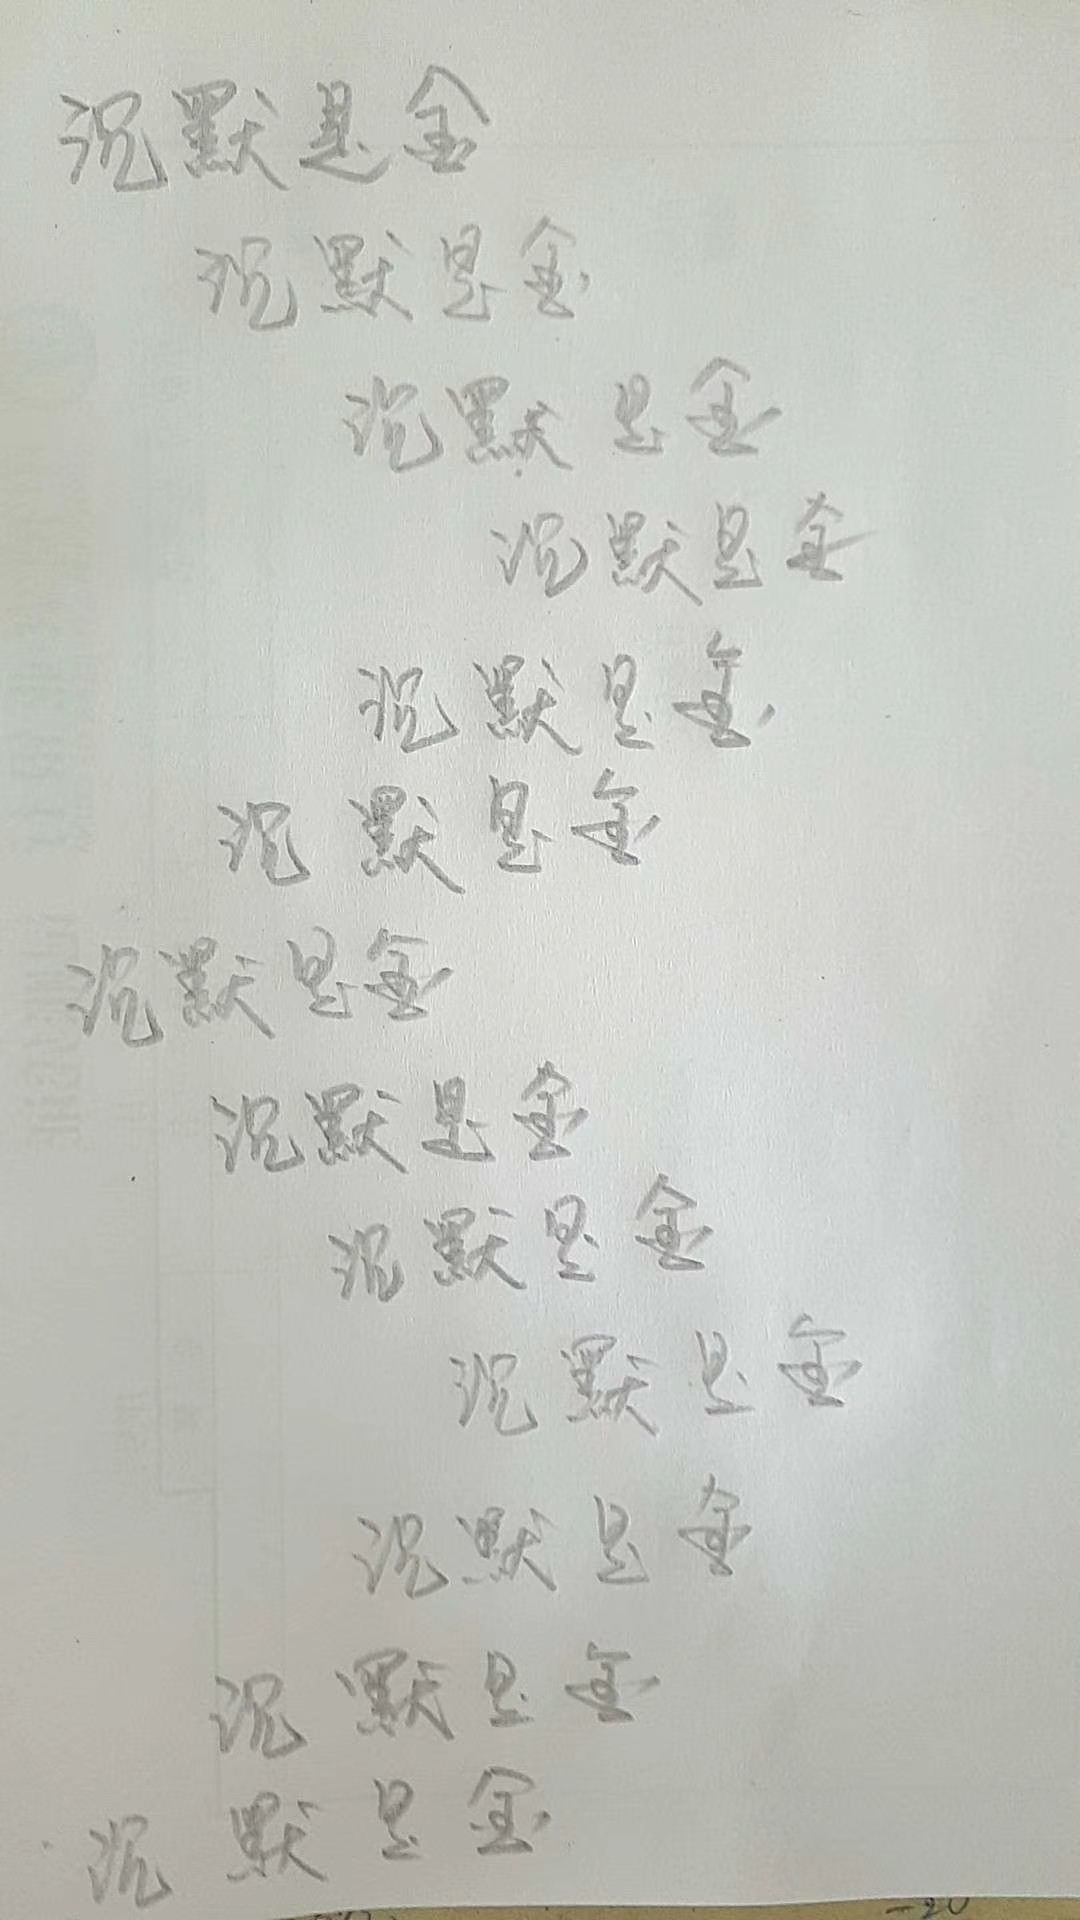 沉默是金
沉默是金
沉默是金
沉默是金
沉默是金
沉默是金
沉默是金
沉默是金
沉默是金
沉默是金
沉默是金
沉默是金
沉默是金
-20